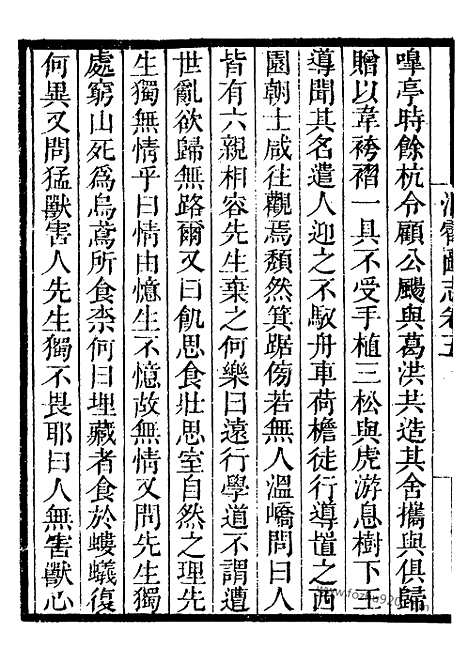 洞霄圖志卷五
嗥亭時餘杭令顧公颺與葛洪共造其舍攜與俱歸
贈以韋袴褶一具不受手植三松與虎游息樹下王
導聞其名遣人迎之不馭舟車荷檐徒行導置之西
園朝士咸往觀焉頹然箕踞傍若無人溫嶠問曰人
皆有六親相容先生棄之何樂曰遠行學道不謂遭
世亂欲歸無路爾又曰飢思食壯思室自然之理先
生獨無情乎曰情由憶生不憶故無情又問先生獨
處窮山死爲烏鳶所食柰何曰埋藏者食於螻蟻復
何異又問猛獸害人先生獨不畏耶曰人無害獸心